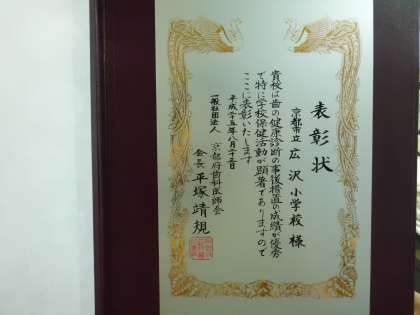 表彰状
京都市立 広沢小学校 様
貴校は歯の健康診断の事後措置の成績が優秀
で特に学校保健活動が顕著でありますので
ここに表彰いたします
平成二十五年八月二十二日
一般社団法人 京都府歯科医師会
会長 平塚靖規